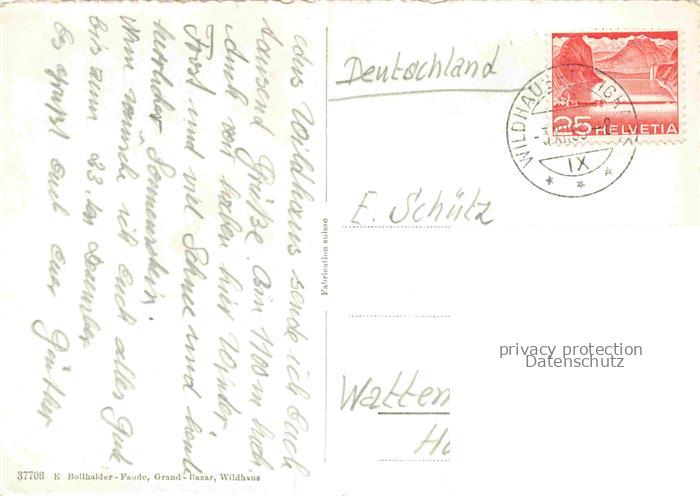 Aus Wildhaus sende ich Euch
tausend Grüße. Bin 1100 m hoch
und wir haben hier Winter
Frost und viel Schnee und heute
herrlicher Sonnenschein.
Nun wünsche ich euch alles Gute
bis zum 23. ten Dezember
Es grüßt euch euer Günther
Deutschland
HELVETIA
25
WILDHAUS
IX
E. Schütz
Watten
Fabrication suisse
privacy protection
Datenschutz
37708 E Bollhalder-Faude, Grand-Bazar, Wildhaus